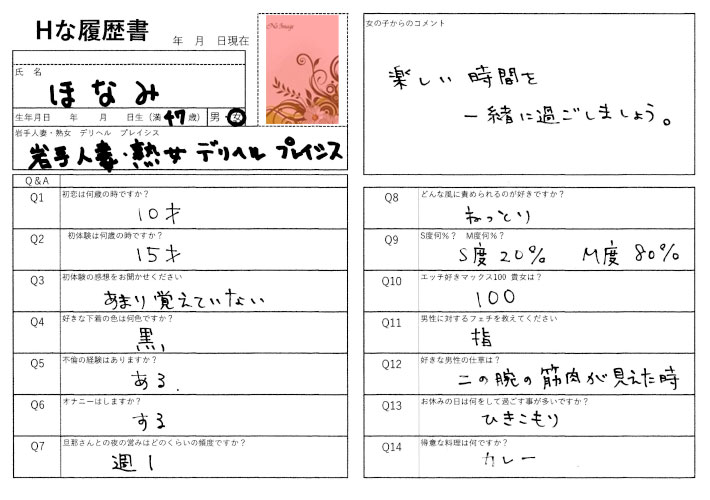 Hな履歴書
年 月 日現在
No Image
氏 名
ほなみ
生年月日 年 月 日生（満 47 歳） 男・女
岩手人妻・熟女 デリヘル プレイシス
岩手人妻・熟女 デリヘル プレイシス
女の子からのコメント
楽しい時間を
一緒に過ごしましょう。
Q&A
Q1 初恋は何歳の時ですか？
10才
Q2 初体験は何歳の時ですか？
15才
Q3 初体験の感想をお聞かせください
あまり覚えていない
Q4 好きな下着の色は何色ですか？
黒
Q5 不倫の経験はありますか？
ある.
Q6 オナニーはしますか？
する
Q7 旦那さんとの夜の営みはどのくらいの頻度ですか？
週1
Q8 どんな風に責められるのが好きですか？
ねっとり
Q9 S度何%？ M度何%？
S度20% M度80%
Q10 エッチ好きマックス100 貴女は？
100
Q11 男性に対するフェチを教えてください
指
Q12 好きな男性の仕草は？
二の腕の筋肉が見えた時
Q13 お休みの日は何をして過ごす事が多いですか？
ひきこもり
Q14 得意な料理は何ですか？
カレー